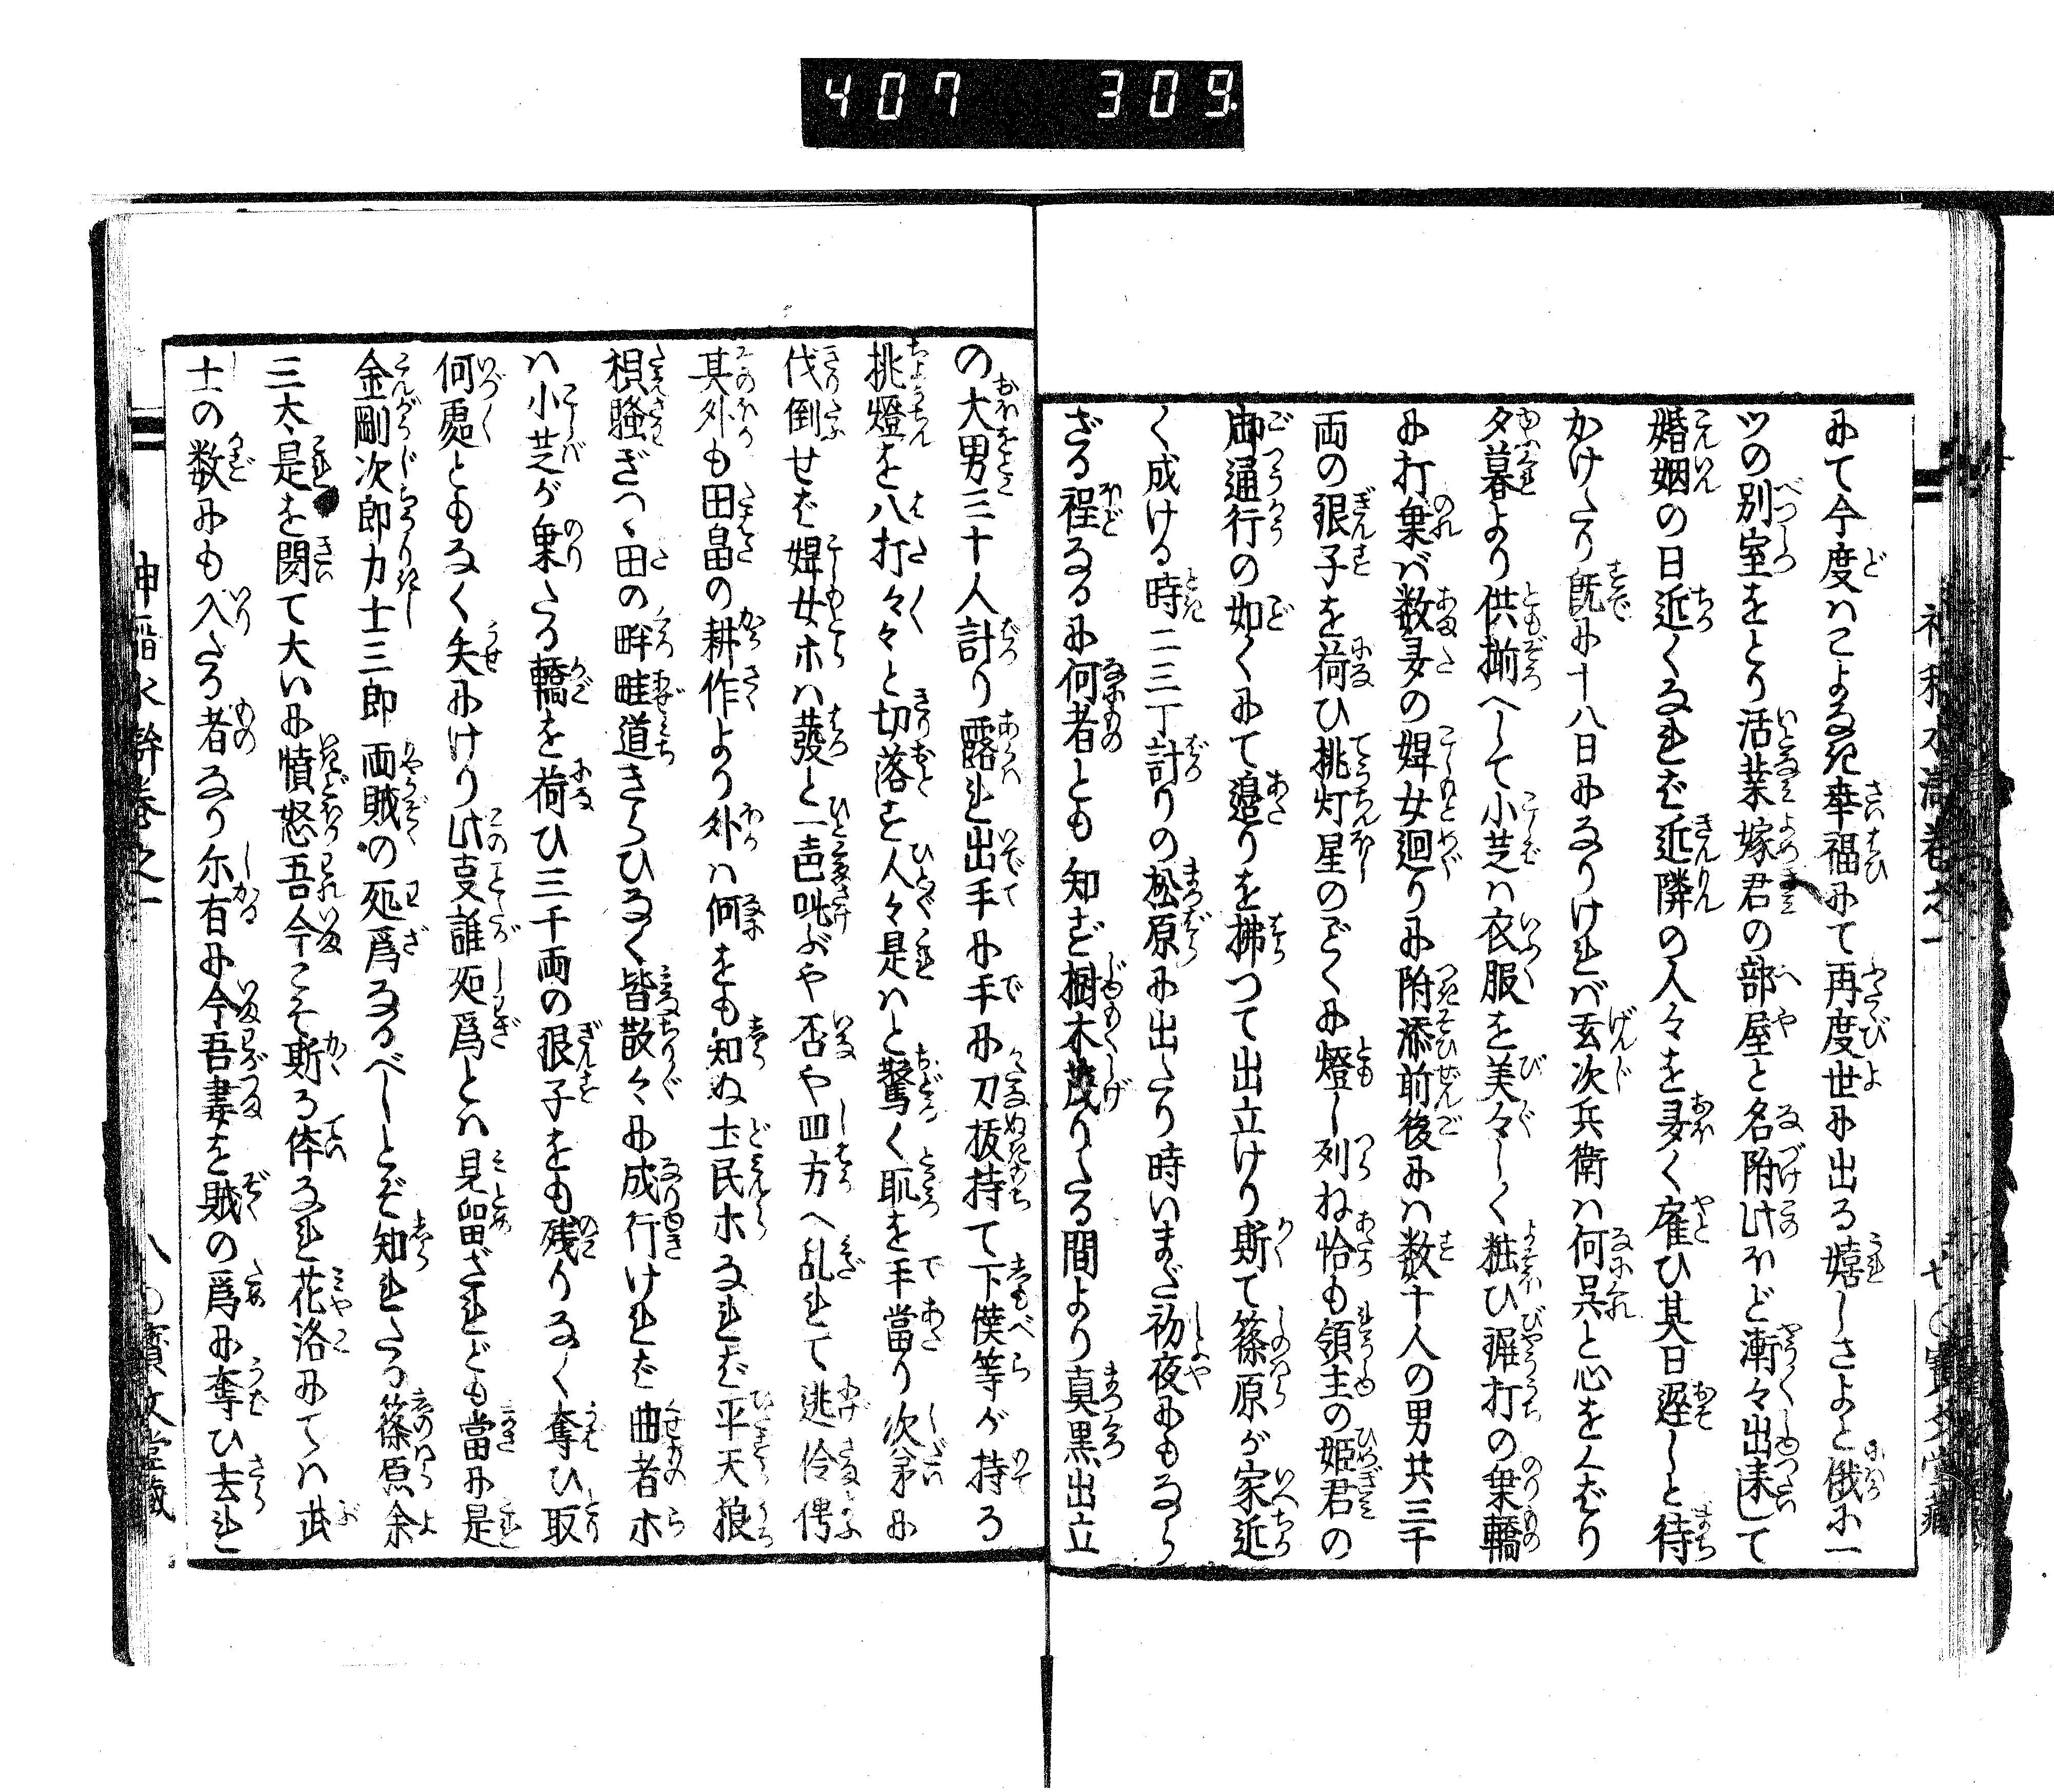 407 309.
みて今度ハこよなき幸福みて再度世み出る嬉しさよと俄み一
ツの別室をとり活業嫁君の部屋と名附此ほど漸々出来して
婚姻の日近くなれど近隣の人々を多く雇ひ其日遅しと待
かけたり既み十八日みなりけれバ玄次兵衛ハ何呉と心をくばり
夕暮より供揃へして小芝ハ衣服を美々しく粧ひ鋲打の乗轎
み打乗バ数多の婢女廻りみ附添前後みハ数十人の男共三千
両の銀子を荷ひ挑灯星のごくみ燈し列ね恰も領主の姫君の
御通行の如くみて邉りを拂つて出立けり斯て篠原が家近
く成ける時二三丁計りの松原み出たり時いまだ初夜みもなら
ざる程なるみ何者とも知ず樹木茂りたる間より真黒出立
の大男三十人計り露れ出手み手み刀抜持て下僕等が持る
挑燈を八打々々と切落す人々是ハと驚く耻を手當り次第み
伐倒せば婢女ホハ發と一声叫ぶや否や四方へ乱れて逃伶俜
其外も田畠の耕作より外ハ何をも知ぬ土民ホなれば平天狼
狽騒ぎつゝ田の畔畦道きらひなく皆散々み成行けれど曲者ホ
ハ小芝が乗たる轎を荷ひ三千両の銀子をも残りなく奪ひ取
何處ともなく失みけり此叓誰死爲とハ見留ざれども當み是
金剛次郎力士三郎両賊の死爲なるべしとぞ知れたる篠原余
三太是を聞て大いみ憤怒吾今こそ斯る体なれ花洛みてハ武
士の数みも入たる者なり尓有み今吾妻を賊の爲み奪ひ去れ